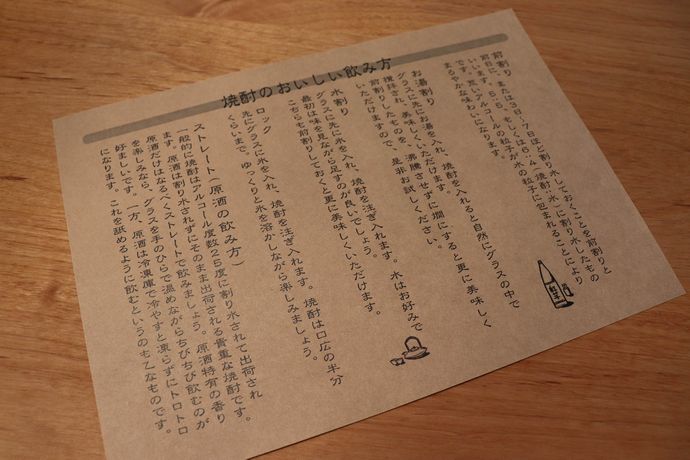 焼酎のおいしい飲み方
前割り
前日に、または3日〜7日ほど割り水しておくことを前割りと
いいます。5：5、もしくは6：4(焼酎：水)に割り水したもの
です。荒いアルコールの粒子が水の粒子に包まれることにより
まろやかな味わいになります。
お湯割り
グラスに先にお湯を入れ、焼酎を入れると自然にグラスの中で
攪拌され、美味しくいただけます。
前割りしたものを、沸騰させずに燗にすると更に美味しく
いただけますので、是非お試しください。
水割り
グラスに先に氷を入れ、焼酎を注ぎ入れます。水はお好みで
最初は味を見ながら足すのが良いでしょう。
こちらも前割りしておくと更に美味しくいただけます。
ロック
先にグラスに氷を入れ、焼酎を注ぎ入れます。焼酎は口広の半分
くらいまで。ゆっくりと氷を溶かしながら楽しみましょう。
ストレート(原酒の飲み方)
一般的に焼酎はアルコール度数25度に割り水されて出荷され
ます。原酒は割り水されずにそのまま出荷される貴重な焼酎です。
原酒だけはなるべくストレートで飲みましょう。原酒特有の香り
を楽しみなら、グラスを手のひらで温めながらちびちび飲むのが
好ましいです。一方、原酒は冷凍庫で冷やすと凍らずにトロトロ
になります。これを舐めるように飲むというのも乙なものです。